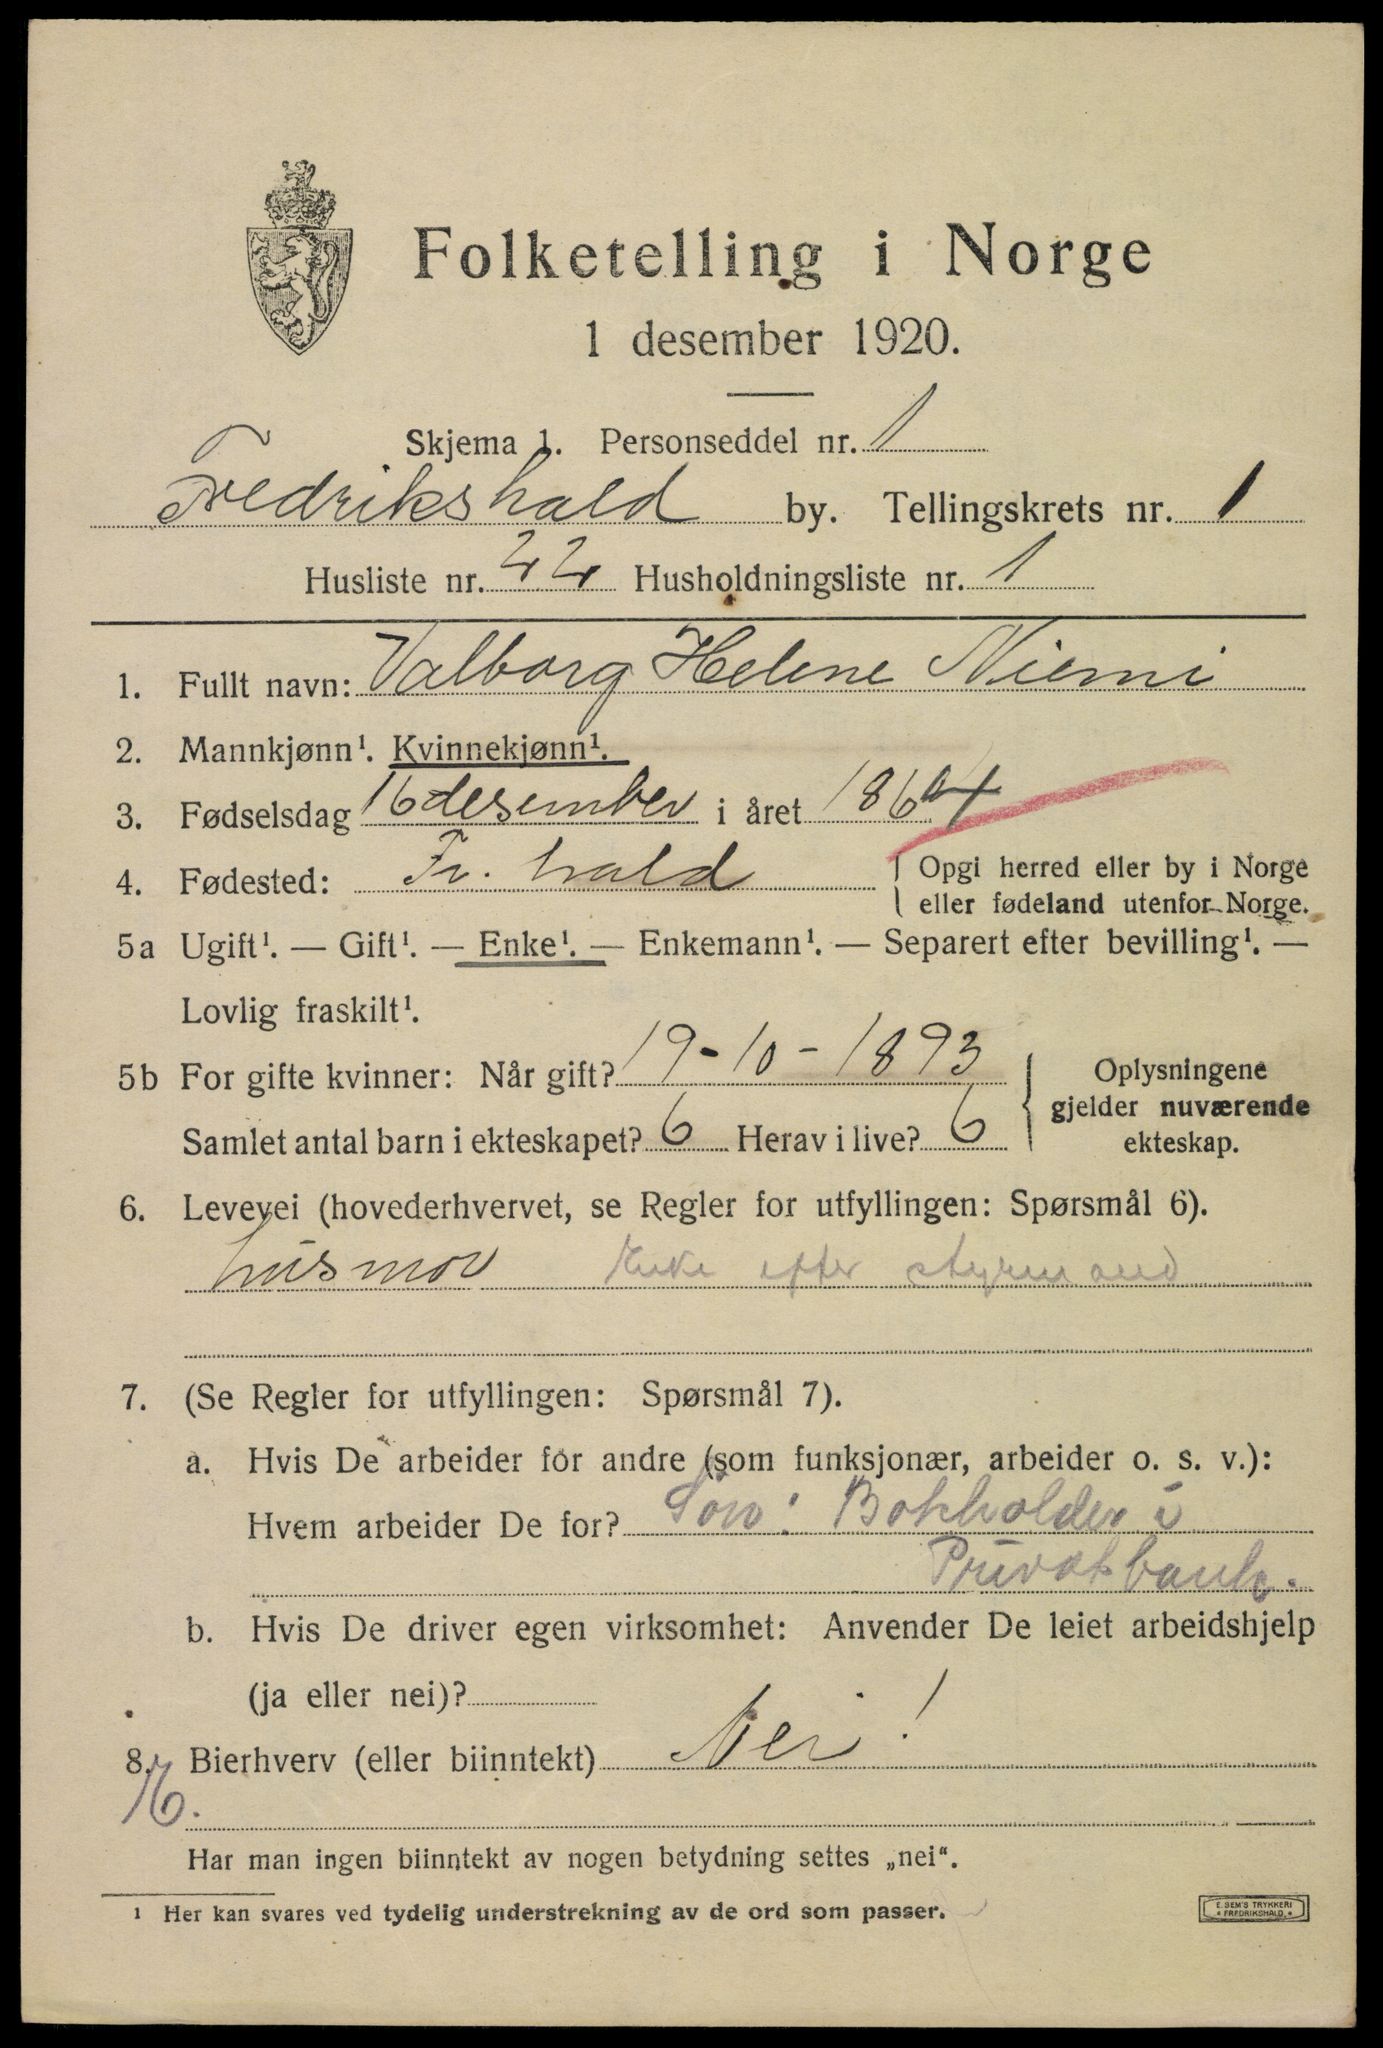 Folketelling i Norge
1 desember 1920.
Skjema 1. Personseddel nr. 1
Fredrikshald by. Tellingskrets nr. 1
Husliste nr. 22 Husholdningsliste nr. 1
1. Fullt navn: Valborg Helene Niemi
2. Mannkjønn¹. Kvinnekjønn¹.
3. Fødselsdag 16 desember i året 1864
4. Fødested: Fr. hald { Opgi herred eller by i Norge
eller fødeland utenfor Norge.
5a Ugift¹. — Gift¹. — Enke¹. — Enkemann¹. — Separert efter bevilling¹. —
Lovlig fraskilt¹.
5b For gifte kvinner: Når gift? 19-10-1893
Samlet antal barn i ekteskapet? 6 Herav i live? 6
{ Oplysningene
gjelder nuværende
ekteskap.
6. Levevei (hovederhvervet, se Regler for utfyllingen: Spørsmål 6).
husmor Enke efter styrmand
7. (Se Regler for utfyllingen: Spørsmål 7).
a. Hvis De arbeider for andre (som funksjonær, arbeider o. s. v.):
Hvem arbeider De for? Søn: Bokholder i
Privatbank.
b. Hvis De driver egen virksomhet: Anvender De leiet arbeidshjelp
(ja eller nei)?
8. Bierhverv (eller biinntekt) Nei!
Har man ingen biinntekt av nogen betydning settes „nei“.
¹ Her kan svares ved tydelig understrekning av de ord som passer.
E. SEM'S TRYKKERI
* FREDRIKSHALD. *